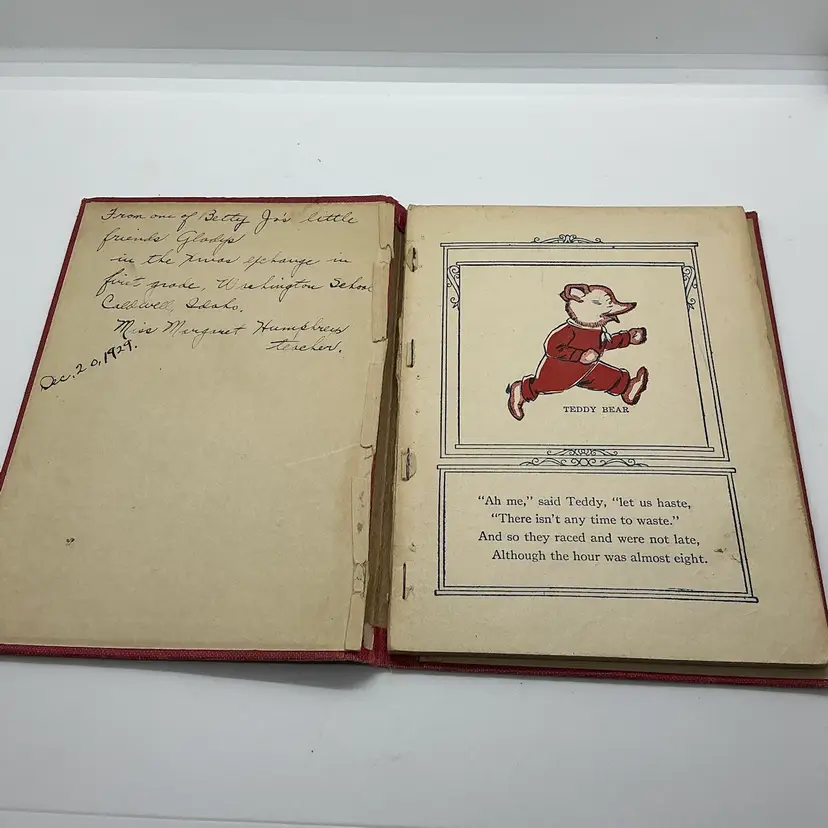 From one of Betty Jo's little
friends Gladys
in the Xmas exchange in
first grade, Washington School
Caldwell, Idaho.
Miss Margaret Humphreys
teacher.
Dec. 20, 1929.
TEDDY BEAR
“Ah me,” said Teddy, “let us haste,
“There isn’t any time to waste.”
And so they raced and were not late,
Although the hour was almost eight.